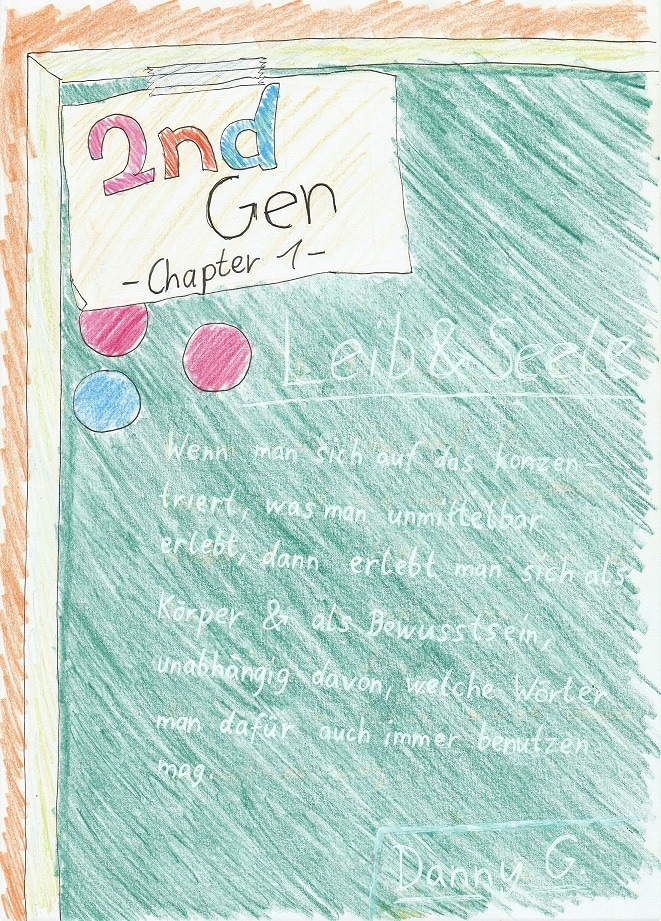 2nd
Gen
-Chapter 1-
Leib & Seele
Wenn man sich auf das konzen-
triert, was man unmittelbar
erlebt, dann erlebt man sich als
Körper & als Bewusstsein,
unabhängig davon, welche Wörter
man dafür auch immer benutzen
mag.
Danny G.